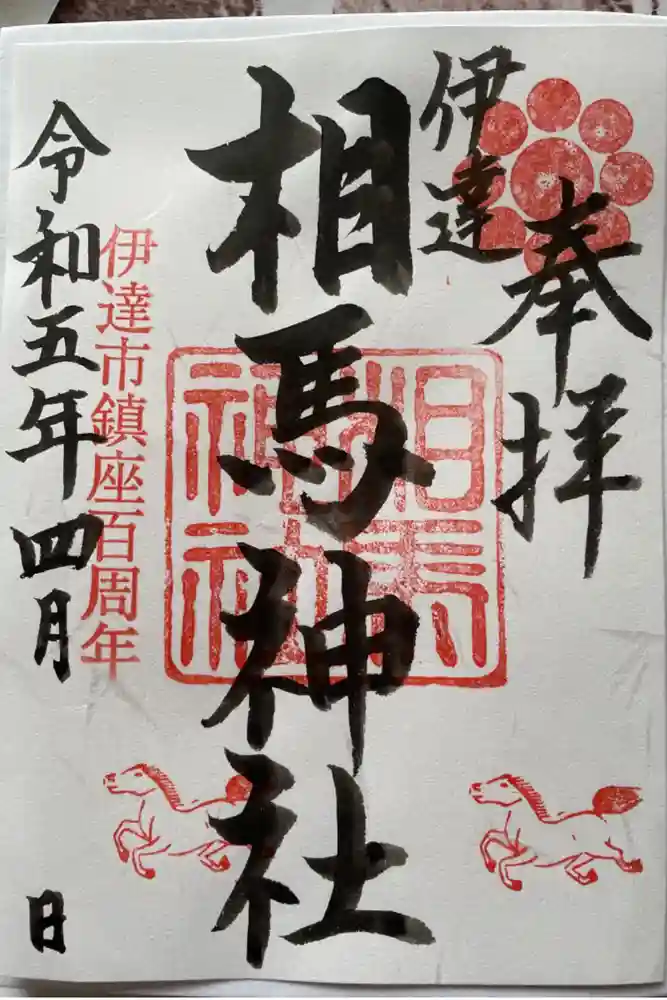 奉拝
伊達
相馬神社
相馬神社
伊達市鎮座百周年
令和五年四月 日